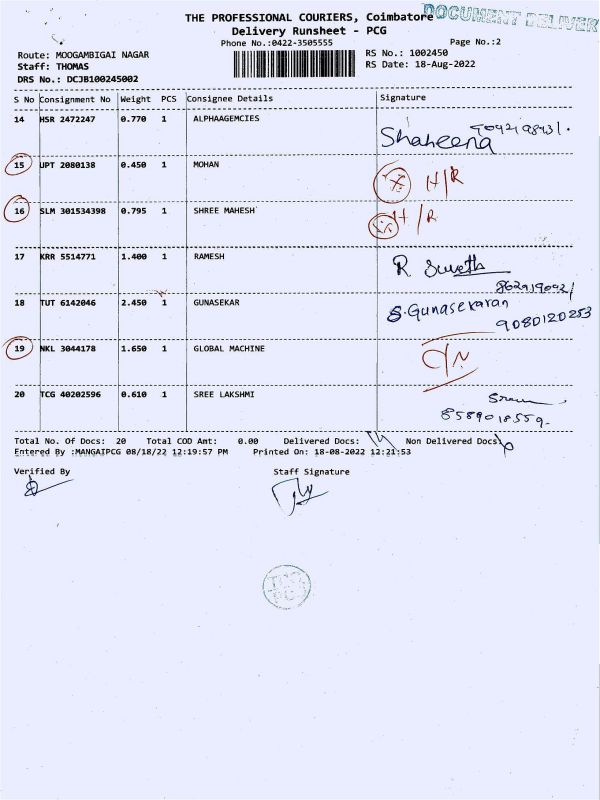 THE PROFESSIONAL COURIERS, Coimbatore
DOCUMENT DELIVER
Delivery Runsheet - PCG
Phone No.:0422-3505555
Page No.:2
Route: MOOGAMBIGAI NAGAR
RS No.: 1002450
Staff: THOMAS
RS Date: 18-Aug-2022
DRS No.: DCJB100245002
S No Consignment No Weight PCS Consignee Details Signature
14 HSR 2472247 0.770 1 ALPHAAGEMCIES
Shaheena
15 UPT 2080138 0.450 1 MOHAN
H/R
16 SLM 301534398 0.795 1 SHREE MAHESH
H/R
17 KRR 5514771 1.400 1 RAMESH
R
18 TUT 6142046 2.450 1 GUNASEKAR
S.Gunasekaran
9080120253
19 NKL 3044178 1.650 1 GLOBAL MACHINE
20 TCG 40202596 0.610 1 SREE LAKSHMI
8589018559.
Total No. Of Docs: 20 Total COD Amt: 0.00 Delivered Docs: 14 Non Delivered Docs: 6
Entered By :MANGAIPCG 08/18/22 12:19:57 PM Printed On: 18-08-2022 12:21:53
Verified By Staff Signature